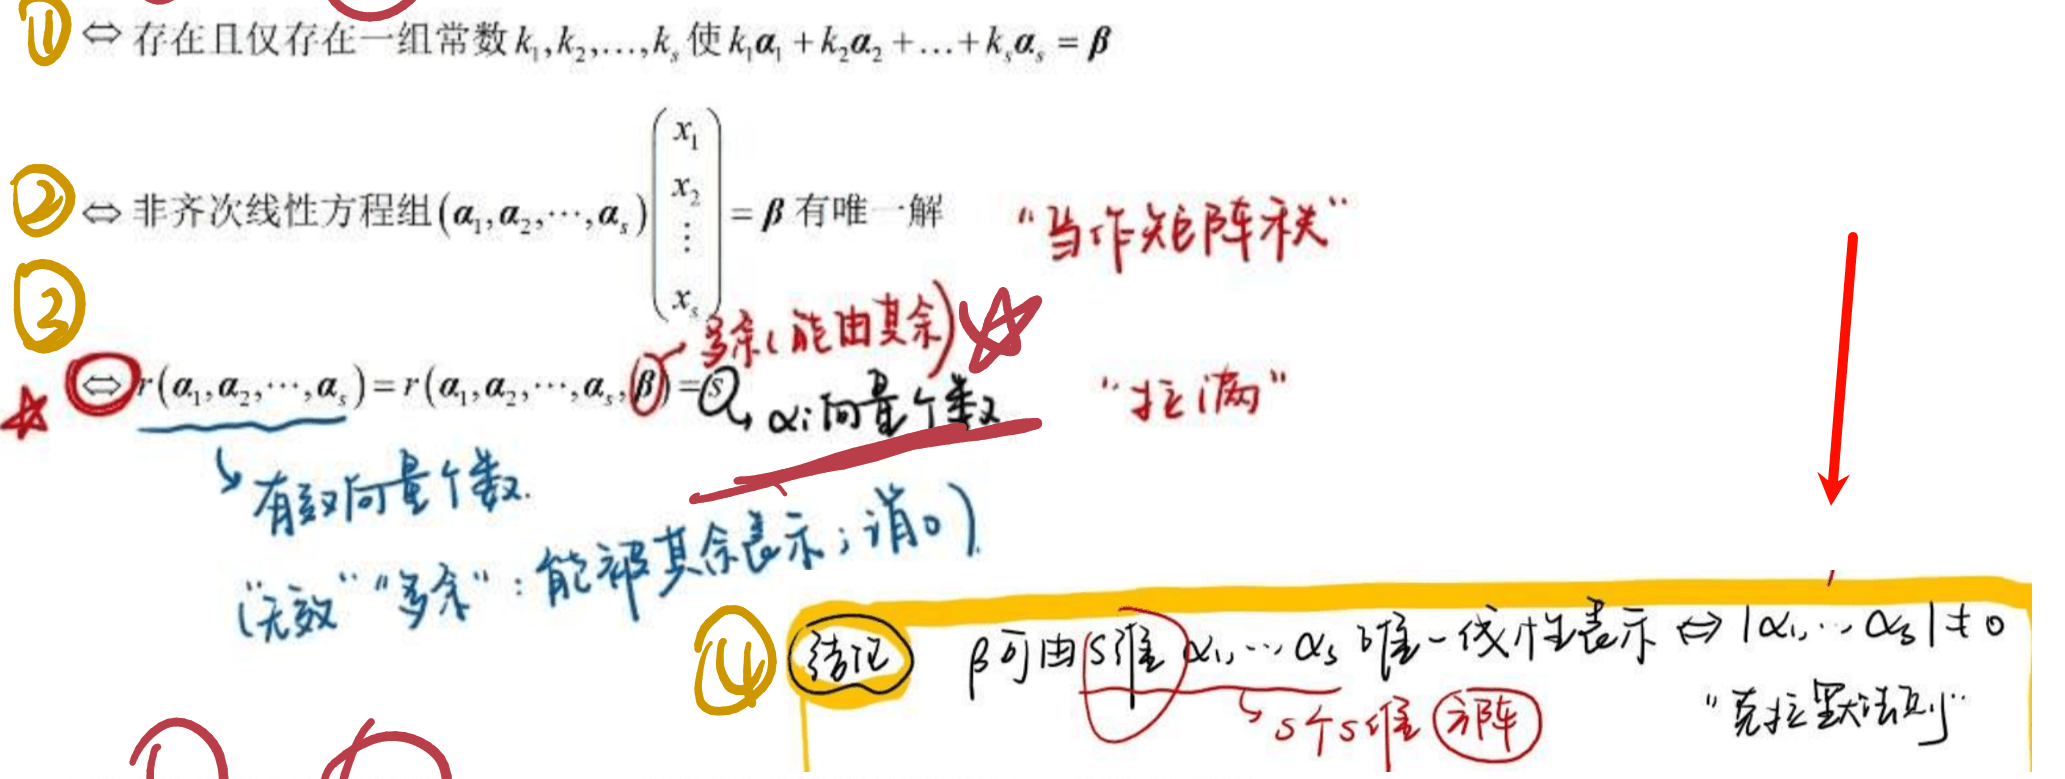 ① ⇔ 存在且仅存在一组常数 k₁,k₂,…,kₛ 使 k₁α₁+k₂α₂+…+kₛαₛ=β
② ⇔ 非齐次线性方程组(α₁,α₂,⋯,αₛ)(x₁ x₂ ⋮ xₛ)=β 有唯一解
"当作矩阵秩"
③
多余(能由其余)
⇔ r(α₁,α₂,⋯,αₛ)=r(α₁,α₂,⋯,αₛ,β)=s
αi向量个数
"拉满"
有效向量个数.
("无效""多余":能被其余表示;消0)
④ 结论 β可由s维α₁,⋯αₛ唯一线性表示⇔|α₁,⋯αₛ|≠0
s个s维 方阵
"克拉默法则"